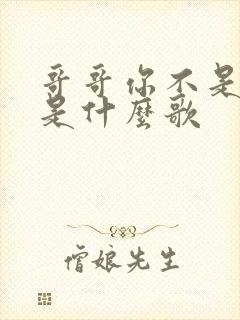 哥哥你不是
是什麼歌
僧娘先生